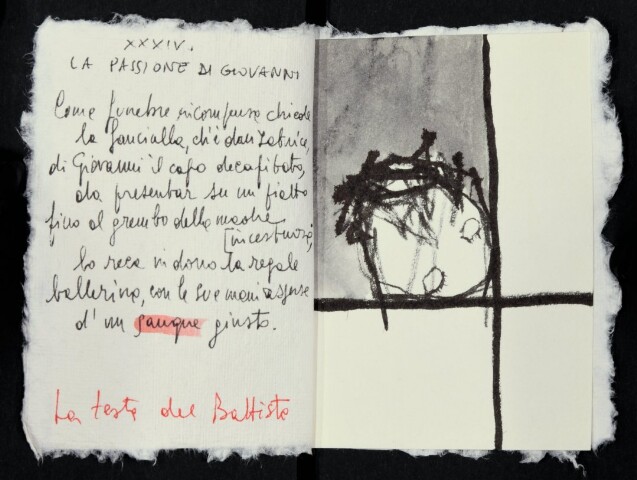 XXXIV.
LA PASSIONE DI GIOVANNI
Come funebre ricompensa chiede
la fanciulla, ch'è danzatrice,
di Giovanni il capo decapitato,
da presentar su un piatto
fino al grembo della madre
[incestuosa,
lo reca in dono la regale
ballerina, con le sue mani asperse
d'un sangue giusto.
La testa del Battista